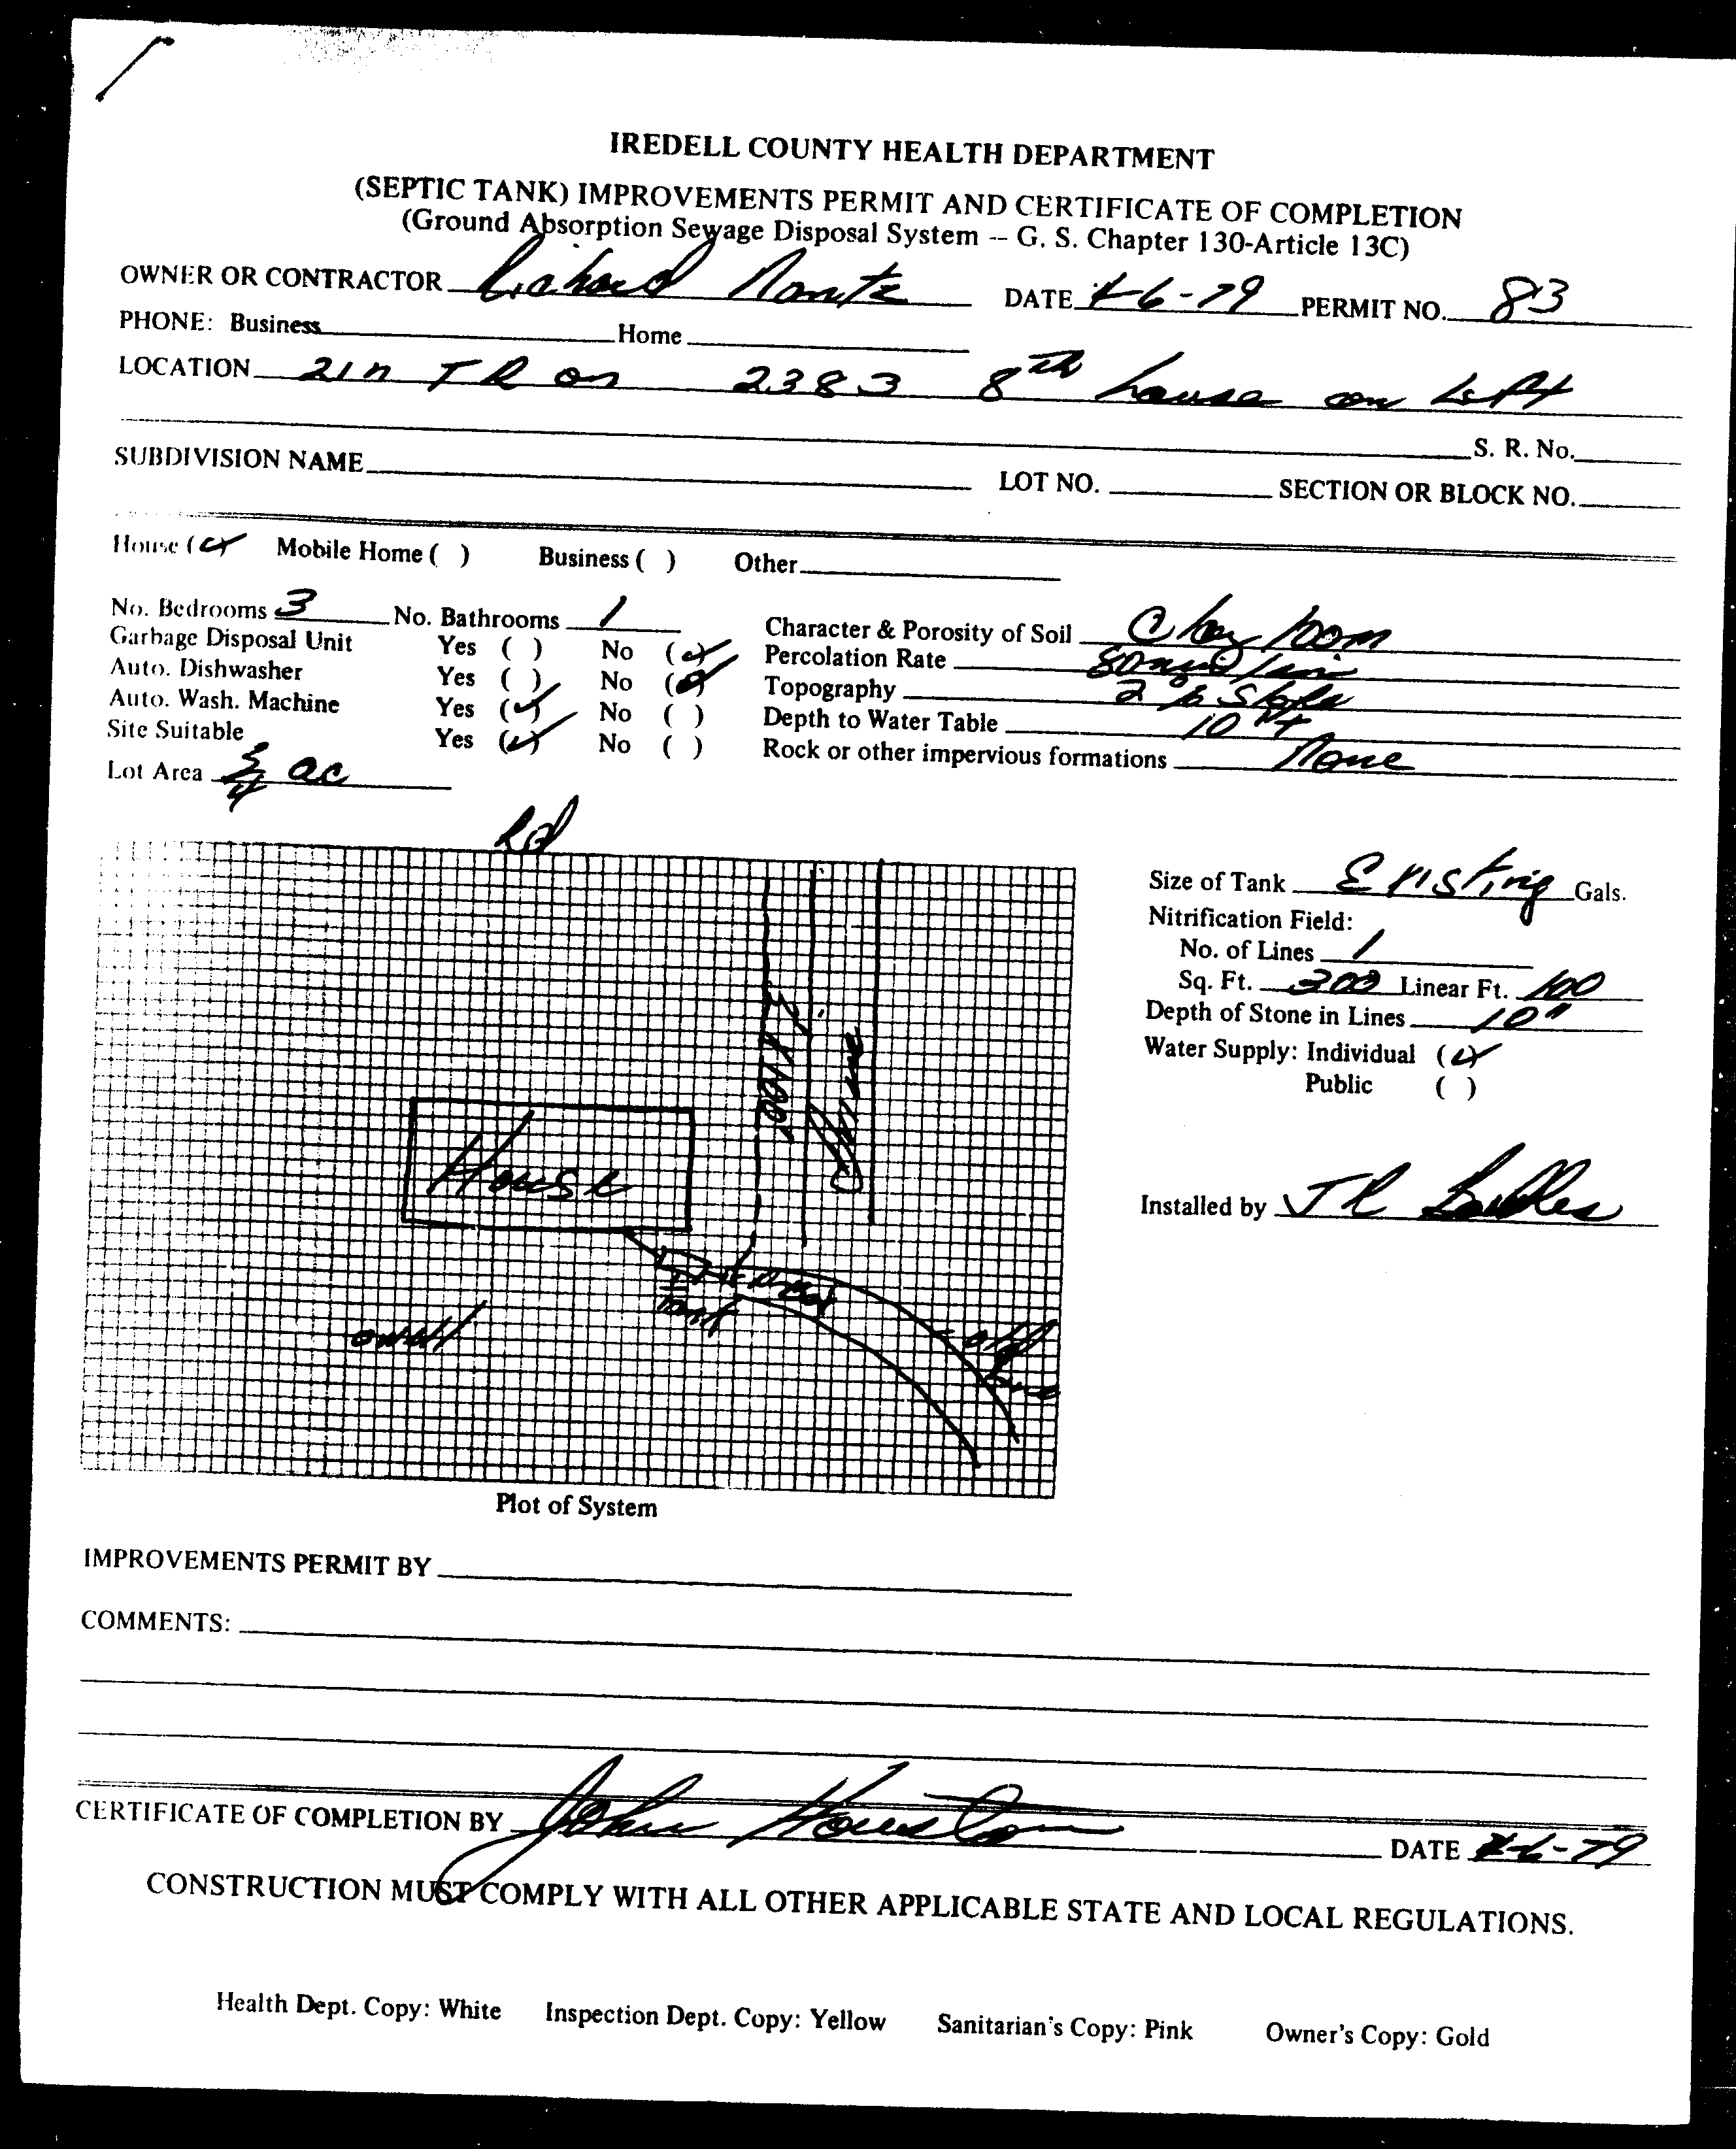 IREDELL COUNTY HEALTH DEPARTMENT
(SEPTIC TANK) IMPROVEMENTS PERMIT AND CERTIFICATE OF COMPLETION
(Ground Absorption Sewage Disposal System -- G. S. Chapter 130-Article 13C)
OWNER OR CONTRACTOR Richard DATE 6-79 PERMIT NO. 83
PHONE: Business Home
LOCATION 21n TR on 2383 8th house on Left
S. R. No.
SUBDIVISION NAME LOT NO. SECTION OR BLOCK NO.
House (✓) Mobile Home ( ) Business ( ) Other
No. Bedrooms 3 No. Bathrooms 1 Character & Porosity of Soil Clay loom
Garbage Disposal Unit Yes ( ) No (✓) Percolation Rate
Auto. Dishwasher Yes ( ) No (✓) Topography 2% Slope
Auto. Wash. Machine Yes (✓) No ( ) Depth to Water Table 10 ft
Site Suitable Yes (✓) No ( ) Rock or other impervious formations None
Lot Area 3/4 ac
Rd
Size of Tank Existing Gals.
Nitrification Field:
No. of Lines 1
Sq. Ft. 300 Linear Ft. 100
Depth of Stone in Lines 10"
Water Supply: Individual (✓)
Public ( )
3'X100'
Drive
House
Installed by JR
Tank
well
old
line
Plot of System
IMPROVEMENTS PERMIT BY
COMMENTS:
CERTIFICATE OF COMPLETION BY John Houston DATE 6-79
CONSTRUCTION MUST COMPLY WITH ALL OTHER APPLICABLE STATE AND LOCAL REGULATIONS.
Health Dept. Copy: White Inspection Dept. Copy: Yellow Sanitarian's Copy: Pink Owner's Copy: Gold